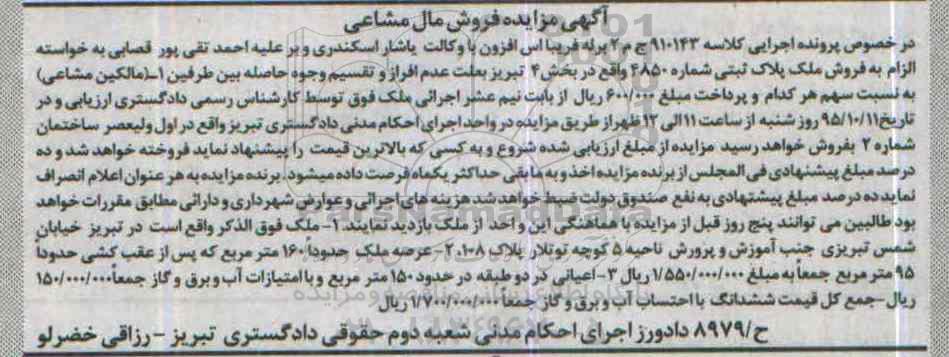 آگهی مزایده فروش مال مشاعی
در خصوص پرونده اجرایی کلاسه ۹۱۰۱۴۳ ج م ۲ برله فریبا اس افزون با وکالت یاشار اسکندری و بر علیه احمد تقی پور قصابی به خواسته
الزام به فروش ملک پلاک ثبتی شماره ۴۸۵۰ واقع در بخش ۴ تبریز بعلت عدم افراز و تقسیم وجوه حاصله بین طرفین ۱-(مالکین مشاعی)
به نسبت سهم هر کدام و پرداخت مبلغ ۶۰۰/۰۰۰ ریال از بابت نیم عشر اجرائی ملک فوق توسط کارشناس رسمی دادگستری ارزیابی و در
تاریخ ۹۵/۱۰/۱۱ روز شنبه از ساعت ۱۱ الی ۱۲ ظهر از طریق مزایده در واحد اجرای احکام مدنی دادگستری تبریز واقع در اول ولیعصر ساختمان
شماره ۲ بفروش خواهد رسید مزایده از مبلغ ارزیابی شده شروع و به کسی که بالاترین قیمت را پیشنهاد نماید فروخته خواهد شد و ده
درصد مبلغ پیشنهادی فی المجلس از برنده مزایده اخذ و به مابقی حداکثر یکماه فرصت داده میشود. برنده مزایده به هر عنوان اعلام انصراف
نماید ده درصد مبلغ پیشنهادی به نفع صندوق دولت ضبط خواهد شد هزینه های اجرائی و عوارض شهرداری و دارائی مطابق مقررات خواهد
بود طالبین می توانند پنج روز قبل از مزایده با هماهنگی این واحد از ملک بازدید نمایند. ۱- ملک فوق الذکر واقع است در تبریز خیابان
شمس تبریزی جنب آموزش و پرورش ناحیه ۵ کوچه توتلار پلاک ۱۰۸-۲- عرصه ملک حدوداً ۱۶۰ متر مربع که پس از عقب کشی حدوداً
۹۵ متر مربع جمعاً به مبلغ ۱/۵۵۰/۰۰۰/۰۰۰ ریال ۳- اعیانی در دو طبقه در حدود ۱۵۰ متر مربع و با امتیازات آب و برق و گاز جمعاً ۱۵۰/۰۰۰/۰۰۰
ریال -جمع کل قیمت ششدانگ با احتساب آب و برق و گاز جمعاً ۱/۷۰۰/۰۰۰/۰۰۰ ریال
ح/۸۹۷۹ دادورز اجرای احکام مدنی شعبه دوم حقوقی دادگستری تبریز - رزاقی خضرلو